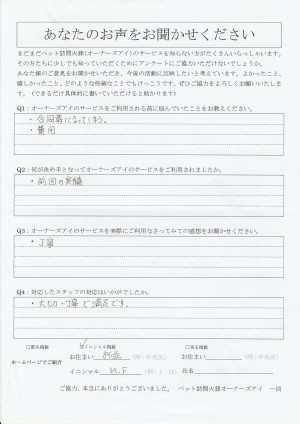 あなたのお声をお聞かせください
まだまだペット訪問火葬(オーナーズアイ)のサービスを知らない方がたくさんいらっしゃいます。
その方たちに少しでも知っていただくためにアンケートにご協力いただけないでしょうか。
あなた様のご意見をお聞かせいただき、今後の活動に反映したいと考えています。よかったこと、
嬉しかったこと、どのような些細なことでもけっこうです。ぜひご協力をよろしくお願いいたしま
す。(できるだけ具体的に書いていただけると助かります)
Q1:オーナーズアイのサービスをご利用される前に悩んでいたことをお教えください。
・合同葬になってしまう。
・費用
Q2:何が決め手となってオーナーズアイのサービスをご利用されましたか。
・前回の実績
Q3:オーナーズアイのサービスを実際にご利用なさってみての感想をお聞かせください。
・丁寧
Q4:対応したスタッフの対応はいかがでしたか。
・大切・丁寧で満足です。
□匿名掲載 イニシャル掲載 □実名掲載
お住まい (例:中央区) お住まい (例:中央区)
ホームページでご紹介
イニシャル M.F 氏名
ご協力、本当にありがとうございました。 ペット訪問火葬オーナーズアイ 一同